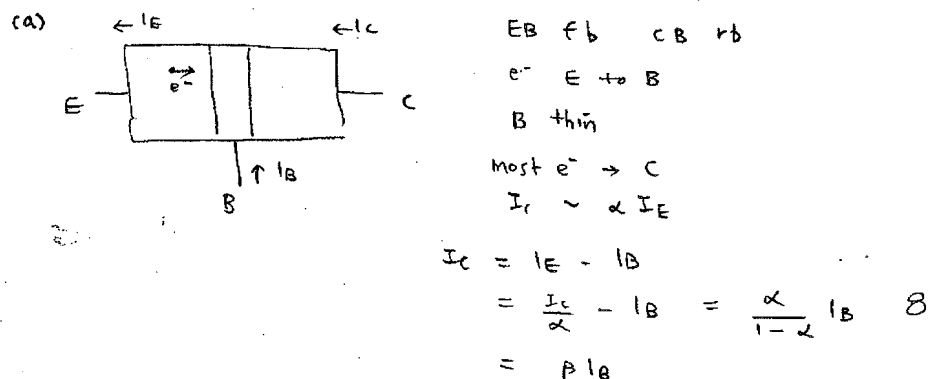 (a)
← IE
← IC
e⁻
E
C
↑ IB
B
EB fb CB rb
e⁻ E to B
B thin
most e⁻ → C
Ic ~ α IE
Ic = IE - IB
= Ic/α - IB = α/(1-α) IB 8
= β IB